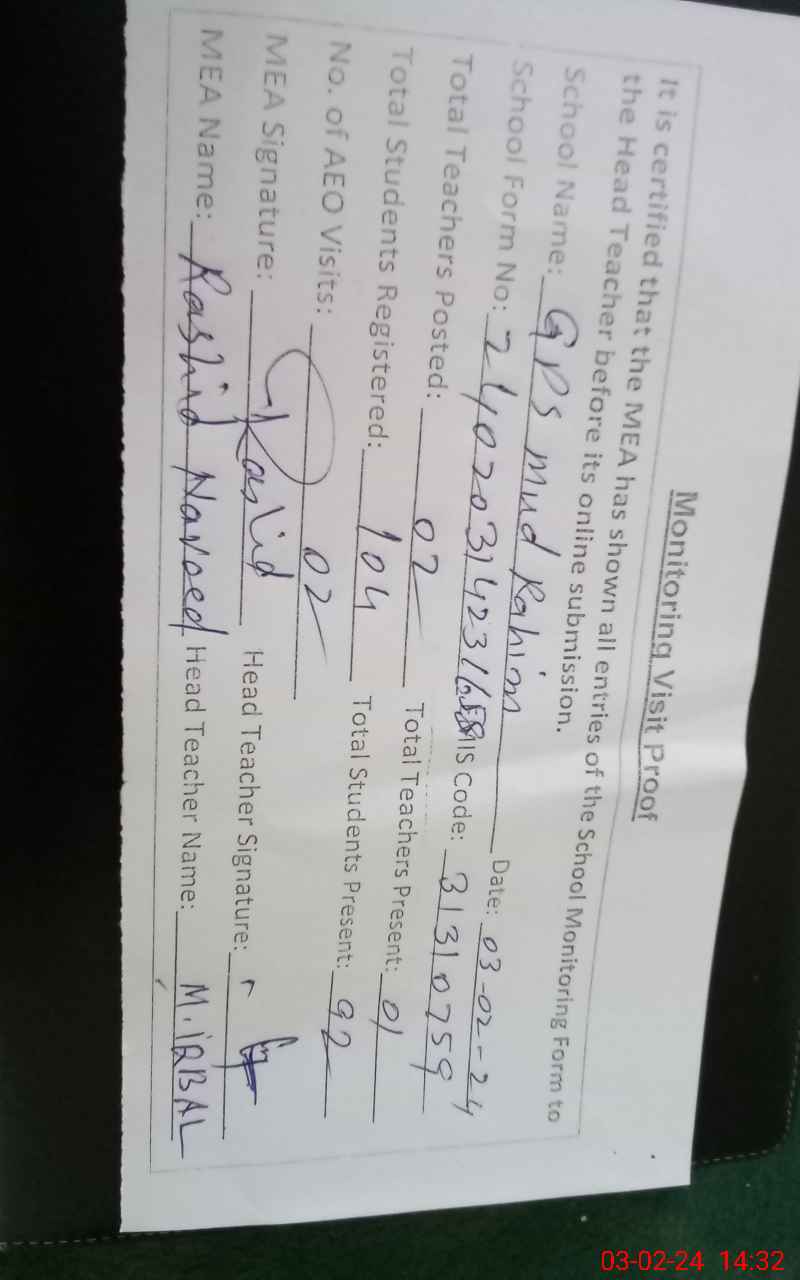 Monitoring Visit Proof
It is certified that the MEA has shown all entries of the School Monitoring Form to
the Head Teacher before its online submission.
School Name: GPS Mud Rahim Date: 03-02-24
School Form No: EMIS Code: 31310759
Total Teachers Posted: 02 Total Teachers Present: 01
Total Students Registered: 104 Total Students Present: 92
No. of AEO Visits: 02
MEA Signature: Rashid Head Teacher Signature:
MEA Name: Rashid Naveed Head Teacher Name: M.IQBAL
03-02-24 14:32